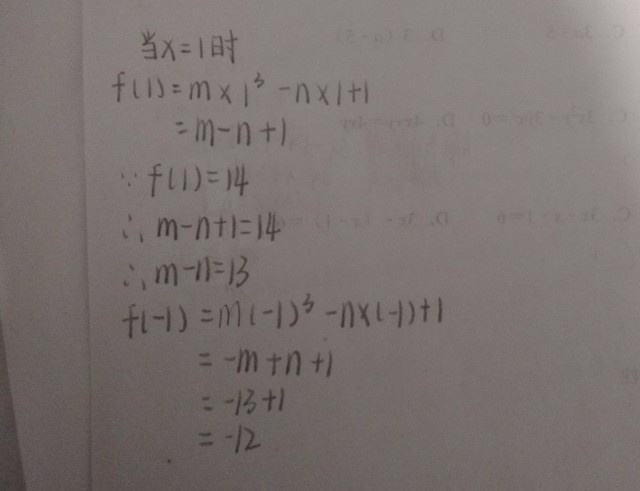 当x=1时
f(1)=m×1³-n×1+1
=m-n+1
∵f(1)=14
∴m-n+1=14
∴m-n=13
f(-1)=m(-1)³-n×(-1)+1
=-m+n+1
=-13+1
=-12